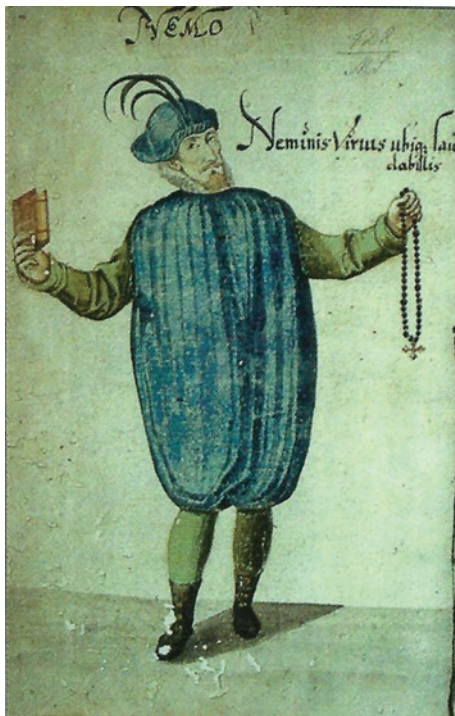 NEMO
Neminis Virtus ubiq; lau
dabillis